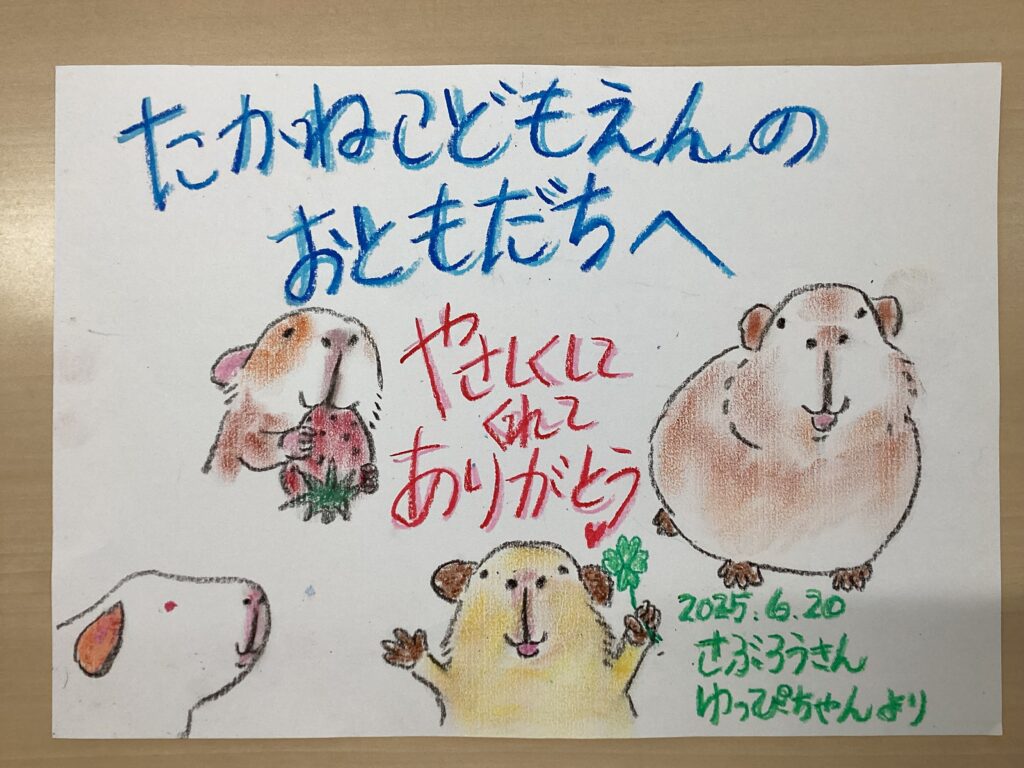 たかねこどもえんの
おともだちへ
やさしくして
くれて
ありがとう
2025.6.20
さぶろうさん
ゆっぴちゃんより